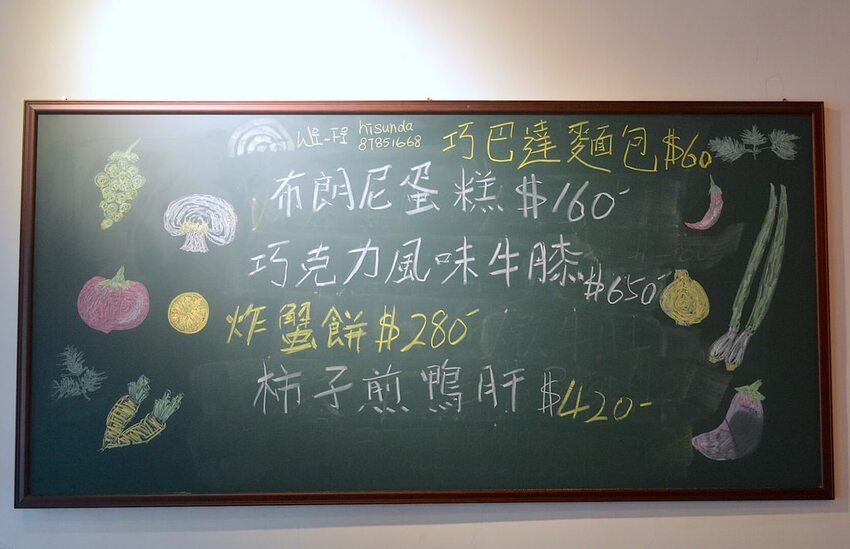 Wi-Fi hisunda
87851668
巧巴達麵包$60
布朗尼蛋糕$160-
巧克力風味牛膝$650-
炸蟹餅$280-
柿子煎鴨肝$420-